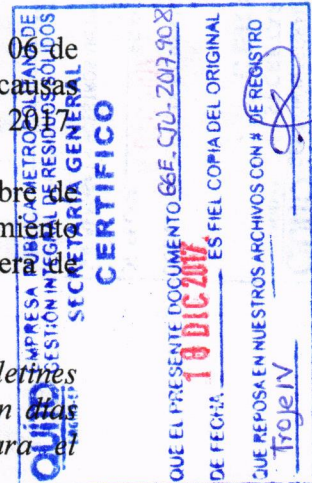 06 de
causas
2017
bre de
miento
era de
letines
n días
ara el
EMPRESA PÚBLICA METROPOLITANA DE
GESTIÓN INTEGRAL DE RESIDUOS SÓLIDOS
SECRETARIA GENERAL
CERTIFICO
QUE EL PRESENTE DOCUMENTO
DE FECHA 18 DIC 2017 ES FIEL COPIA DEL ORIGINAL
QUE REPOSA EN NUESTROS ARCHIVOS CON # DE REGISTRO